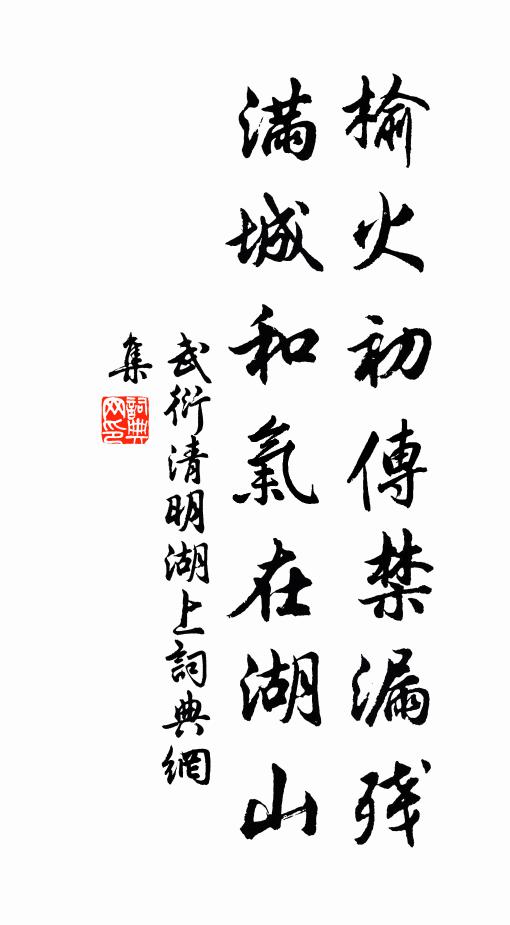 榆火初傳禁漏殘
滿城和氣在湖山
武衍清明湖上詞典網
集
詞典網印